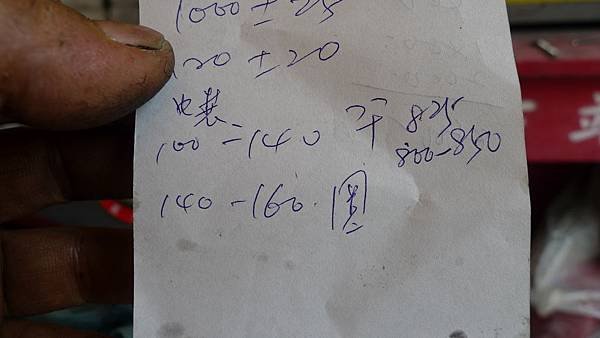 1000 ± 25
120 ± 20
100-140 平 825
800-850
140-160. 圓